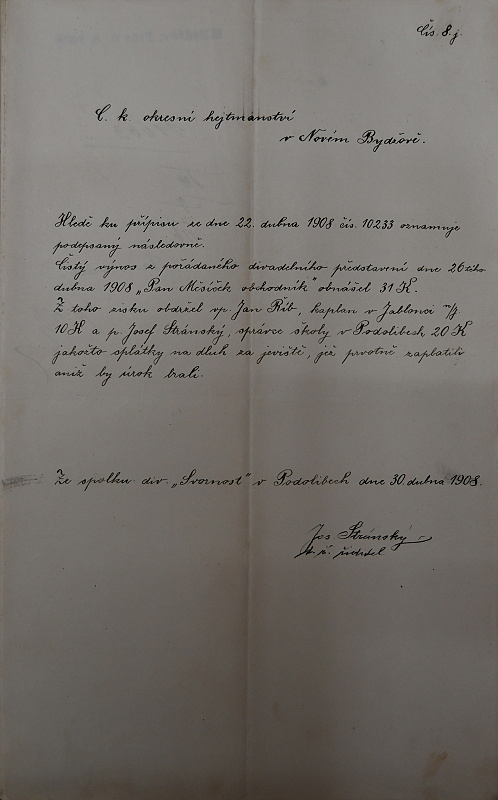 Čís. 8. j.
C. k. okresní hejtmanství
v Novém Bydžově.
Hledě ku přípisu ze dne 22. dubna 1908 čís. 10233 oznamuje
podepsaný následovně.
Čistý výnos z pořádaného divadelního představení dne 26tého
dubna 1908 „Pan Měsíček obchodník“ obnášel 31 K.
Z toho zisku obdržel vp. Jan Řib, kaplan v Jablonci n/J.
10 K a p. Josef Stránský, správce školy v Podolibech 20 K
jakožto splátky na dluh za jeviště, jež prvotně zaplatili
aniž by úrok brali.
Ze spolku div. „Svornost“ v Podolibech dne 30. dubna 1908.
Jos Stránský
t. č. ředitel